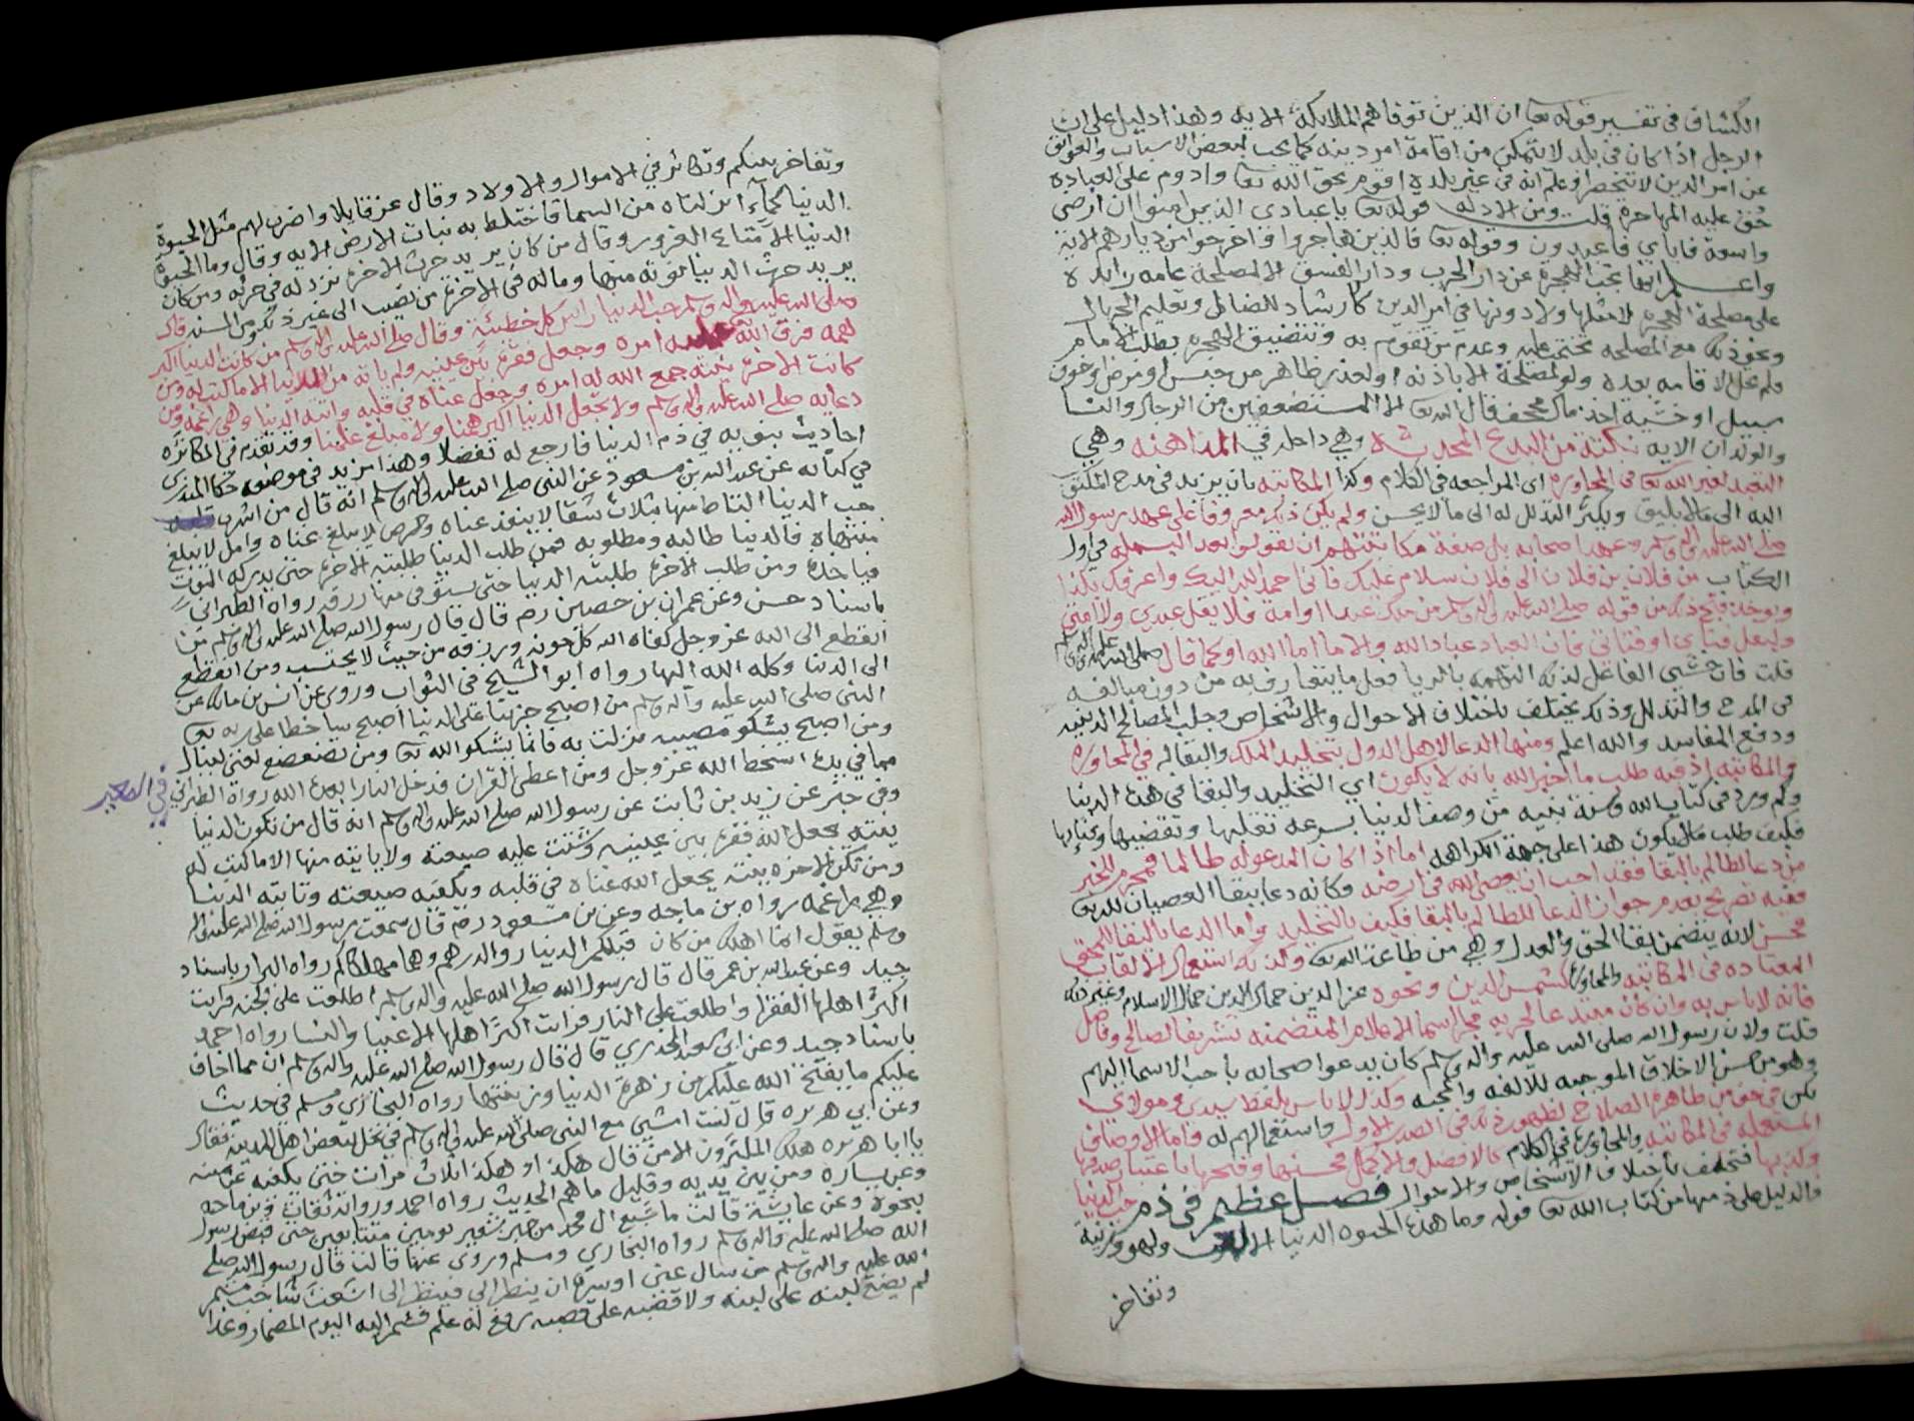 الكشاف في تفسير قوله تعا ان الذين توفاهم الملائكة الايه وهذا دليل على ان
الرجل اذا كان في بلد لا يتمكن من اقامة امر دينه كما يجب لبعض الاسباب والعوائق
عن امر الدين لا تنحصر او علم انه في غير بلده اقوم بحق الله تعا وادوم على العباده
حق عليه المهاجره قلت ومن الادله قوله تعا ياعبادي الذين امنوا ان ارضي
واسعة فاياي فاعبدون وقوله تعا فالذين هاجروا واخرجوا من ديارهم الايه
واعلم انها تجب الهجرة عن دار الحرب ودار الفسق الا لمصلحة عامه زايده
على مصلحة الهجره لا مثلها ولا دونها في امر الدين كارشاد للضال وتعليم الجهال
ونحو ذلك مع المصلحه تحتمت عليه وعدم من تقوم به وتتضيق الهجره بطلب الامام
فلم تحل الاقامه بعده ولو لمصلحة الا باذنه او لعذر ظاهر من حبس او مرض او خوف
سبيل او خشية اخذ مال مجحف قال الله تعا الا المستضعفين من الرجال والنسا
والولدان الايه نكتة من البدع المحدثه وهي داخله في المداهنه وهي
التعبد لغير الله تعا في المحاوره اي المراجعه في الكلام وكذا المكاتبه بان يزيد في مدح المكتوب
اليه الى ما لا يليق ويكثر التذلل له الى ما لا يحسن ولم يكن ذلك معروفا على عهد رسول الله
صلى الله عليه واله وسلم وعهد اصحابه بل صفة مكاتبتهم ان يقولوا بعد البسمله في اول
الكتاب من فلان بن فلان الى فلان سلام عليك فاني احمد الله اليك واعرفك بكذا
ويوخذ قبح ذلك من قوله صلى الله عليه واله وسلم من ملك عبدا او امة فلا يقل عبدي ولا امتي
وليقل فتاي او فتاتي فان العباد عباد الله والاما اما الله او كما قال صلى الله عليه واله وسلم
قلت فان خشي الفاعل لذلك التهمه بالريا فعل ما يتعارف به من دون مبالغه
في المدح والتذلل وذلك يختلف باختلاف الاحوال والاشخاص وجلب المصالح الدينيه
ودفع المفاسد والله اعلم ومنها الدعا لاهل الدول بتخليد الملك والبقا له في المحاوره
والمكاتبه اذ فيه طلب ما اخبر الله بانه لا يكون اي التخليد والبقا في هذه الدنيا
ولم ورد في كتاب الله وسنة نبيه من وصف الدنيا بسرعه تقلبها وتقضيها وفنائها
فكيف طلب ما لا يكون هذا على جهة الكراهه اما اذا كان المدعو له ظالما فمحرم لخبر
من دعا لظالم بالبقا فقد احب ان يعصى الله في ارضه فكانه دعا ببقا العصيان لله تعا
ففيه تصريح بعدم جواز الدعا للظالم بالبقا فكيف بالتخليد واما الدعا بالبقا للمحق
فحسن لانه يتضمن بقا الحق والعدل وهي من طاعة الله تعا وكذلك استعمال الالقاب
المعتاده في المكاتبه والمحاوره كشمس الدين ونحوه عز الدين جمال الدين جمال الاسلام وغير ذلك
فانه لا باس به وان كان مبتدعا لجريه مجرا اسما الاعلام المتضمنه تشريفا لصالح وفاضل
قلت ولان رسول الله صلى الله عليه واله وسلم كان يدعو اصحابه بأحب الاسما اليهم
وهو من حسن الاخلاق الموجبه للالفه والمحبه وكذا لا باس بلفظ سيدي ومولاي
لكن في حق من ظاهره الصلاح لظهور ذلك في الصدر الاول واستعمالهم له فاما الاوصاف
المستعمله في المكاتبه والمحاوره في الكلام كالافضل والاكمل فحسنها وقبحها باعتبار صدقها
وكذبها فتختلف باختلاف الاشخاص والاحوال فصل عظيم في ذم حب الدنيا
فالدليل على ذمها من كتاب الله تعا قوله وما هذه الحيوه الدنيا الا لعب ولهو وزينة
وتفاخر
وتفاخر بينكم وتكاثر في الاموال والاولاد وقال عز قايلا واضرب لهم مثل الحيوة
الدنيا كمآء انزلناه من السما فاختلط به نبات الارض الايه وقال وما الحيوة
الدنيا الا متاع الغرور وقال من كان يريد حرث الاخرة نزد له في حرثه ومن كان
يريد حرث الدنيا نؤته منها وماله في الاخرة من نصيب الى غير ذلك ومن السنه قال
صلى الله عليه واله وسلم حب الدنيا راس كل خطيئة وقال صلى الله عليه واله وسلم من كانت الدنيا اكبر
همه فرق الله عليه امره وجعل فقره بين عينيه ولم ياته من الدنيا الا ما كتب له ومن
كانت الاخرة نيته جمع الله له امره وجعل غناه في قلبه واتته الدنيا وهي راغمه ومن
دعايه صلى الله عليه واله وسلم ولا تجعل الدنيا اكبر همنا ولا مبلغ علمنا وقد تقدم في المكاثره
احاديث نبويه في ذم الدنيا فارجع له تفضلا وهذا مزيد في موضعه حكا المنذري
في كتابه عن عبدالله بن مسعود عن النبي صلى الله عليه واله وسلم انه قال من اشرب قلبه
حب الدنيا التاط منها بثلاث شقا لا ينفد عناه وحرص لا يبلغ غناه وامل لا يبلغ
منتهاه فالدنيا طالبه ومطلوبه فمن طلب الدنيا طلبته الاخرة حتى يدركه الموت
فياخذه ومن طلب الاخرة طلبته الدنيا حتى يستوفي منها رزقه رواه الطبراني
باسناد حسن وعن عمران بن حصين رضه قال قال رسول الله صلى الله عليه واله وسلم من
انقطع الى الله عز وجل كفاه الله كل مونه ورزقه من حيث لا يحتسب ومن انقطع
الى الدنيا وكله الله اليها رواه ابو الشيخ في الثواب وروي عن انس بن مالك عن
النبي صلى الله عليه واله وسلم من اصبح حزينا على الدنيا اصبح ساخطا على ربه تعا
ومن اصبح يشكو مصيبه نزلت به فانما يشكو الله تعا ومن تضعضع لغني لينال
مما في يده اسخط الله عز وجل ومن اعطي القران فدخل النار ابعده الله رواه الطبراني
في الصغير
وفي خبر عن زيد بن ثابت عن رسول الله صلى الله عليه واله وسلم انه قال من تكون الدنيا
نيته يجعل الله فقره بين عينيه وشتت عليه ضيعته ولا ياتيه منها الا ما كتب له
ومن تكن الاخره نيته يجعل الله غناه في قلبه ويكفيه ضيعته وتاتيه الدنيا
وهي راغمه رواه بن ماجه وعن بن مسعود رضه قال سمعت رسول الله صلى الله عليه واله
وسلم يقول انما اهلك من كان قبلكم الدينار والدرهم وهما مهلكاكم رواه البزار باسناد
جيد وعن عبدالله بن عمر قال قال رسول الله صلى الله عليه واله وسلم اطلعت على الجنه فرايت
اكثر اهلها الفقرا واطلعت على النار فرايت اكثر اهلها الاغنيا والنسا رواه احمد
باسناد جيد وعن ابي سعيد الخدري قال قال رسول الله صلى الله عليه واله وسلم ان مما اخاف
عليكم ما يفتح الله عليكم من زهرة الدنيا وزينتها رواه البخاري ومسلم في حديث
وعن ابي هريره قال كنت امشي مع النبي صلى الله عليه واله وسلم في نخل لبعض اهل المدينه فقال
يا ابا هريره هلك المكثرون الا من قال هكذا وهكذا ثلاث مرات حتى بكفه عن يمينه
وعن يساره ومن بين يديه وقليل ما هم الحديث رواه احمد ورواته ثقات وبن ماجه
بنحوه وعن عايشة قالت ما شبع ال محمد من خبز شعير يومين متتابعين حتى قبض رسول
الله صلى الله عليه واله وسلم رواه البخاري ومسلم وروي عنها قالت قال رسول الله صلى
الله عليه واله وسلم من سال عني او سره ان ينظر الي فينظر الى اشعث شاحب مشمر
لم يضع لبنه على لبنه ولا قصبه على قصبه رفع له علم فشمر اليه اليوم المضمار وغدا